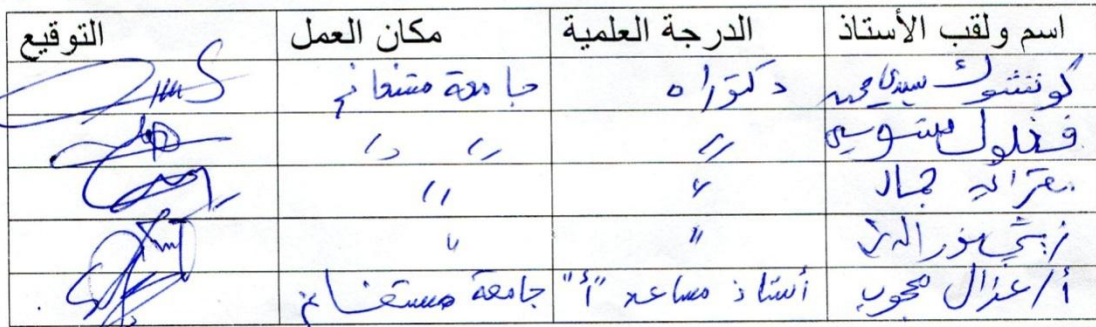 اسم ولقب الأستاذ الدرجة العلمية مكان العمل التوقيع
كوتشوك سيدي محمد دكتوراه جامعة مستغانم
فغلول سنوسي // // //
جمال // //
زيشي نور الدين // //
أ/غزال محجوب أستاذ مساعد "أ" جامعة مستغانم